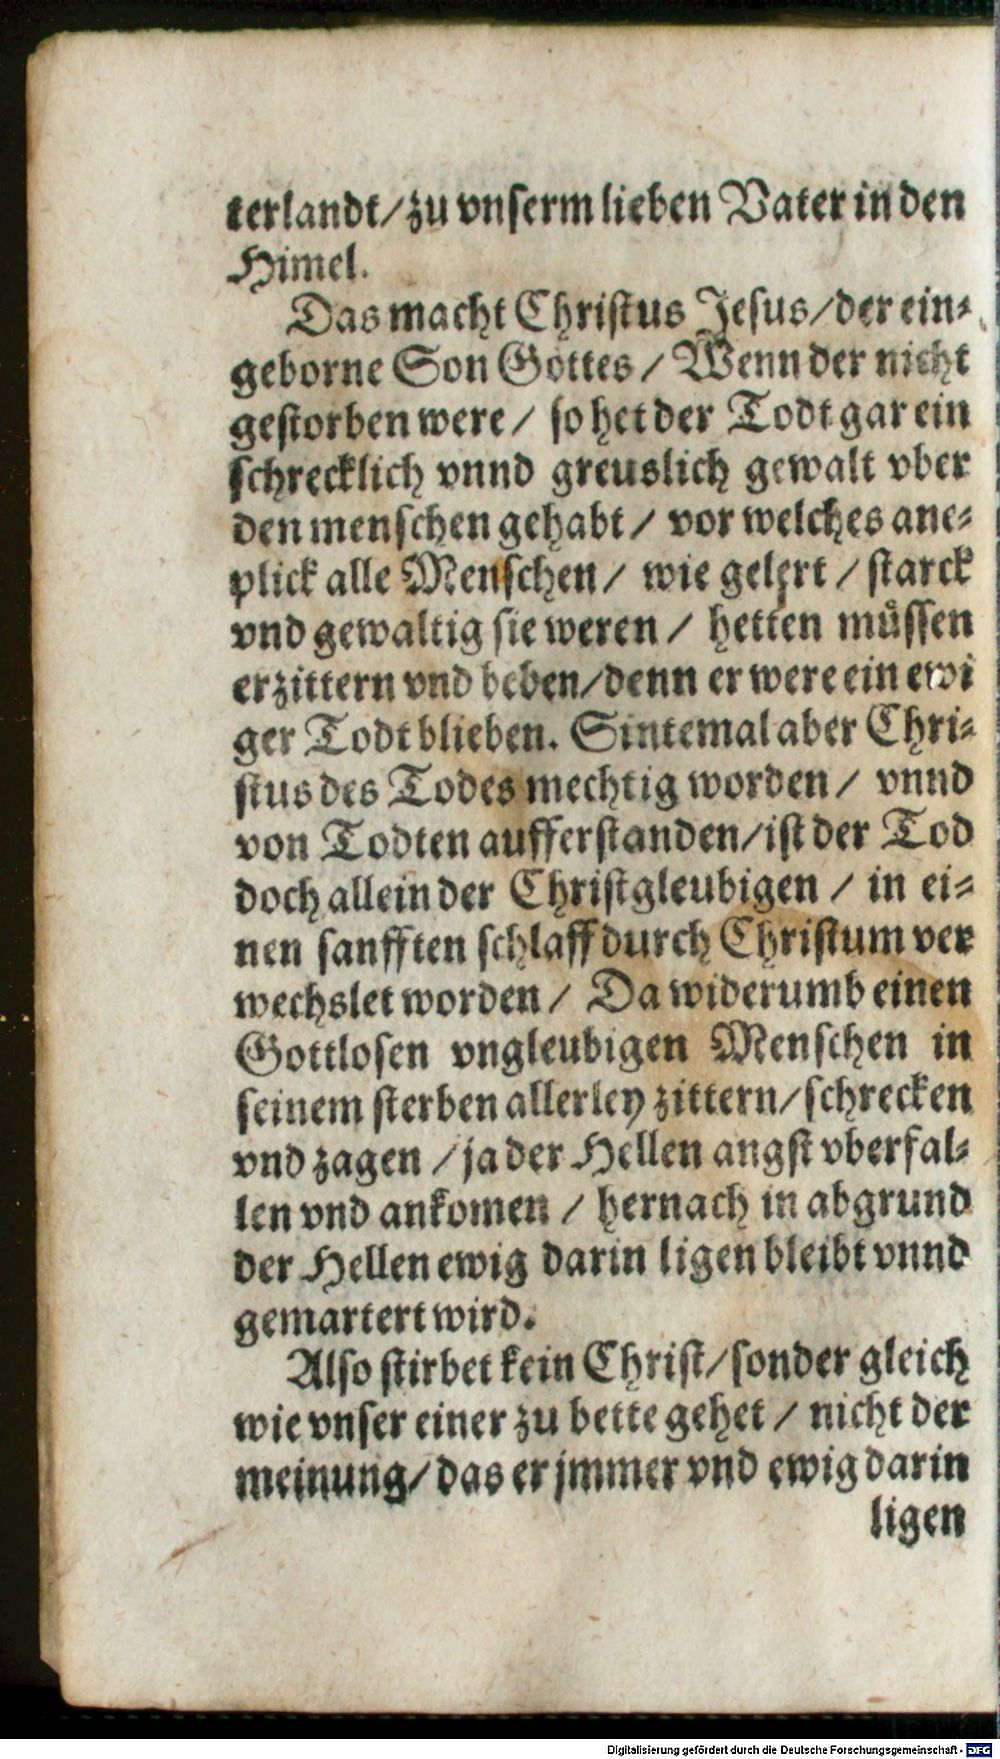 terlandt/zu vnserm lieben Vater in den
Himel.
Das macht Christus Jesus/der ein⸗
geborne Son Gottes / Wenn der nicht
gestorben were / so het der Todt gar ein
schrecklich vnnd greuslich gewalt vber
den menschen gehabt / vor welches ane⸗
plick alle Menschen / wie gelert / starck
vnd gewaltig sie weren / hetten müssen
erzittern vnd beben/denn er were ein ewi
ger Todt blieben. Sintemal aber Chri⸗
stus des Todes mechtig worden / vnnd
von Todten aufferstanden/ist der Tod
doch allein der Christgleubigen / in ei⸗
nen sanfften schlaff durch Christum ver
wechslet worden / Da widerumb einen
Gottlosen vngleubigen Menschen in
seinem sterben allerley zittern/schrecken
vnd zagen / ja der Hellen angst vberfal⸗
len vnd ankomen / hernach in abgrund
der Hellen ewig darin ligen bleibt vnnd
gemartert wird.
Also stirbet kein Christ/sonder gleich
wie vnser einer zu bette gehet / nicht der
meinung/das er jmmer vnd ewig darin
ligen
Digitalisierung gefördert durch die Deutsche Forschungsgemeinschaft - DFG